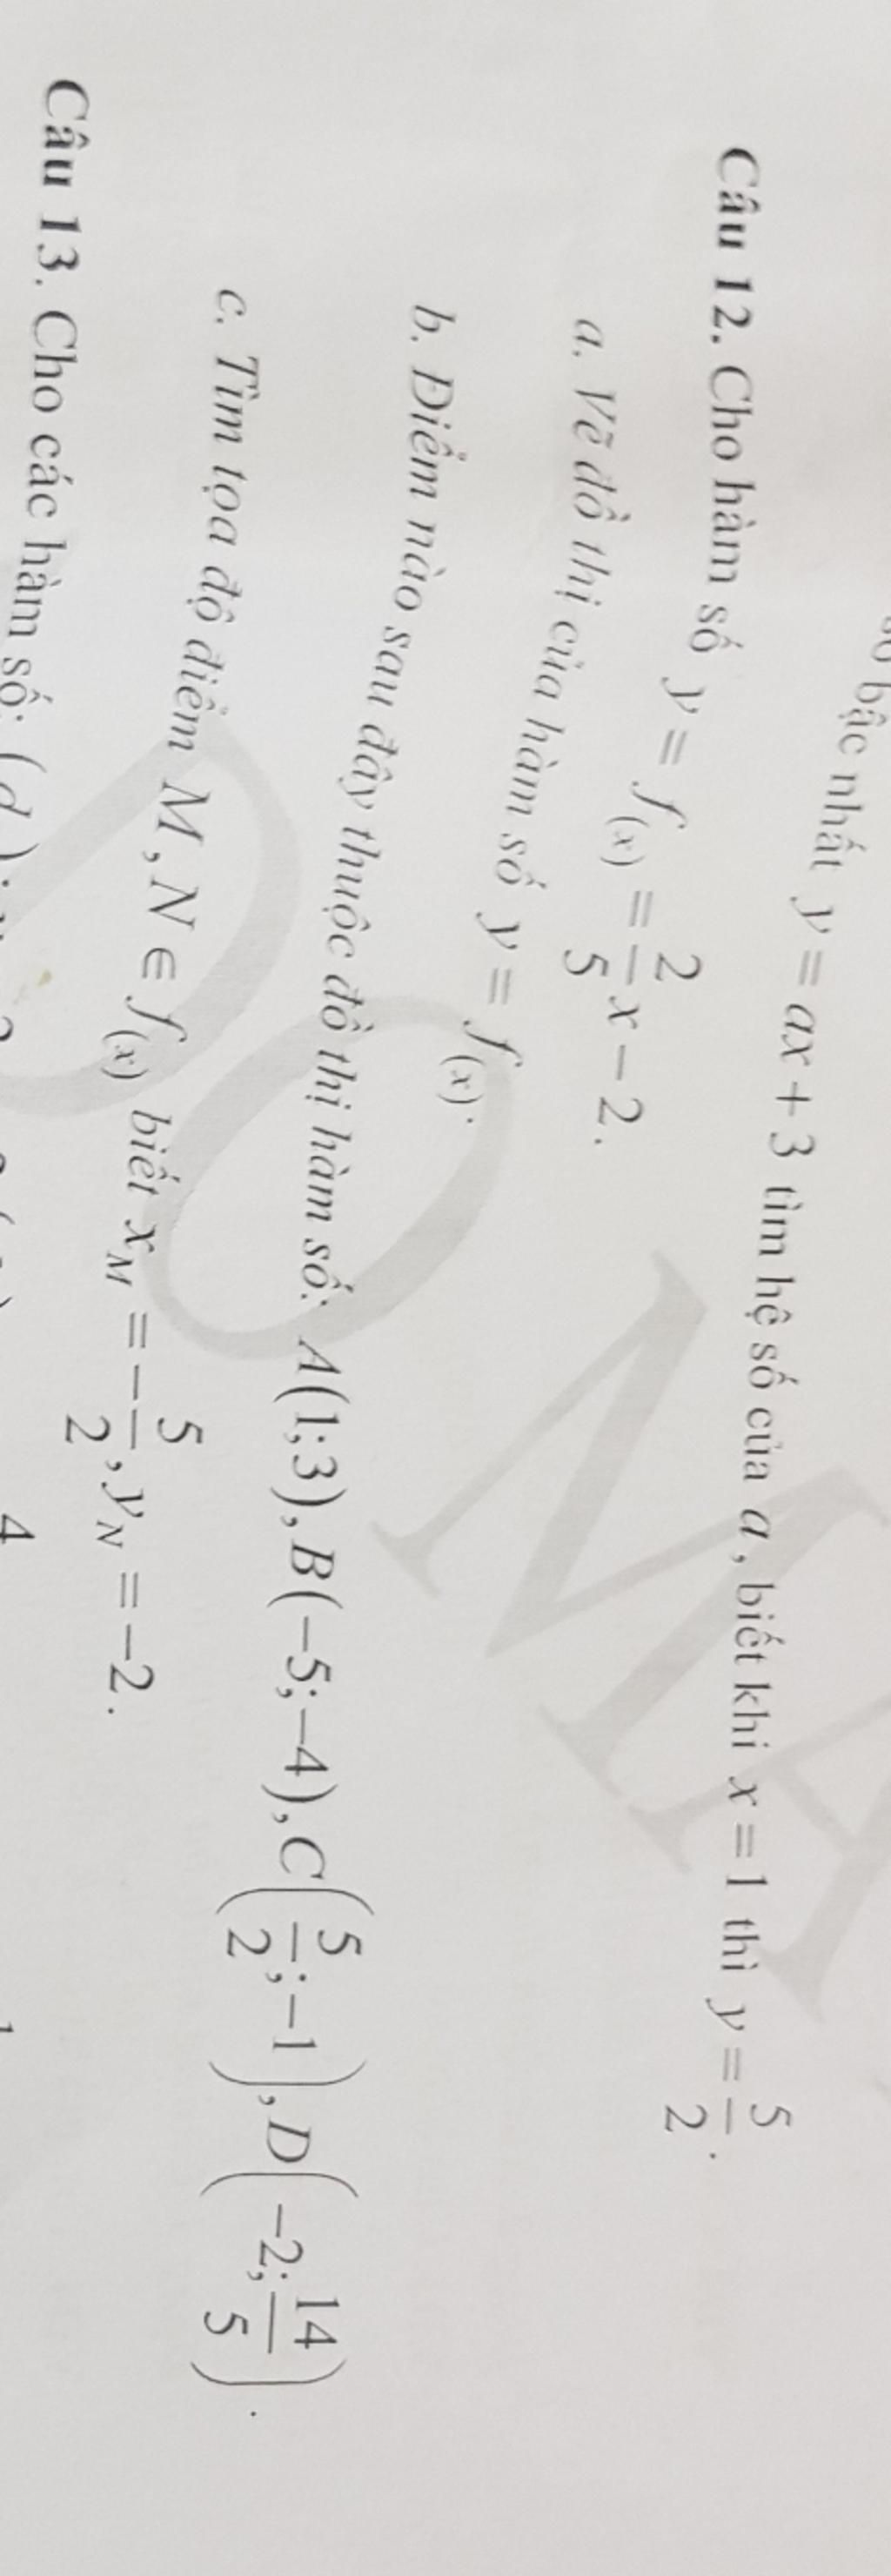 bậc nhất y = ax + 3 tìm hệ số của a, biết khi x = 1 thì y = 5/2.
Câu 12. Cho hàm số y = f(x) = 2/5 x − 2.
a. Vẽ đồ thị của hàm số y = f(x).
b. Điểm nào sau đây thuộc đồ thị hàm số: A(1;3), B(−5;−4), C(5/2;−1), D(−2;14/5).
c. Tìm tọa độ điểm M, N ∈ f(x) biết x_M = −5/2, y_N = −2.
Câu 13. Cho các hàm số: (d